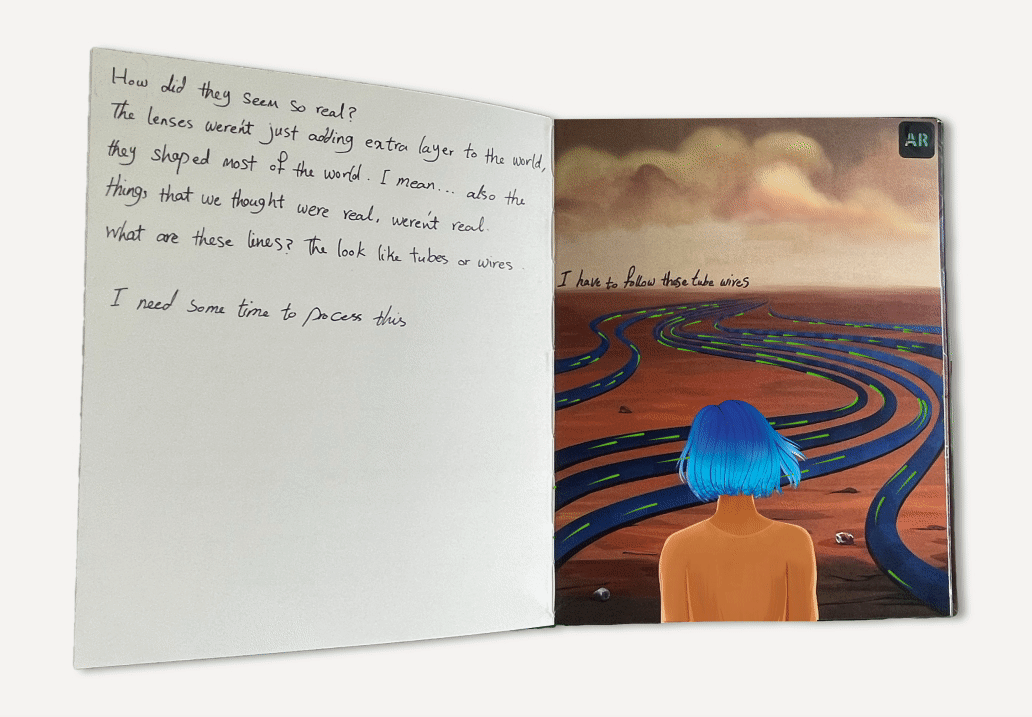 How did they seem so real?
The lenses weren't just adding extra layer to the world,
they shaped most of the world. I mean... also the
things that we thought were real, weren't real.
what are these lines? The look like tubes or wires.
I need some time to process this
AR
I have to follow those tube wires